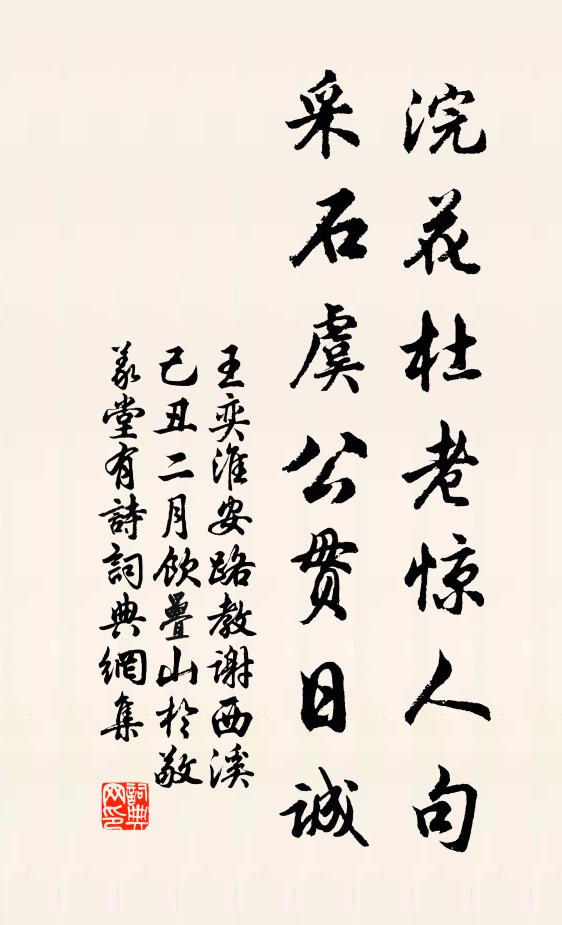 浣花杜老惊人句
采石虞公贯日诚
王奕淮安路教谢西溪
己丑二月飲疊山於敬
義堂有詩詞典網集
詞典
网印